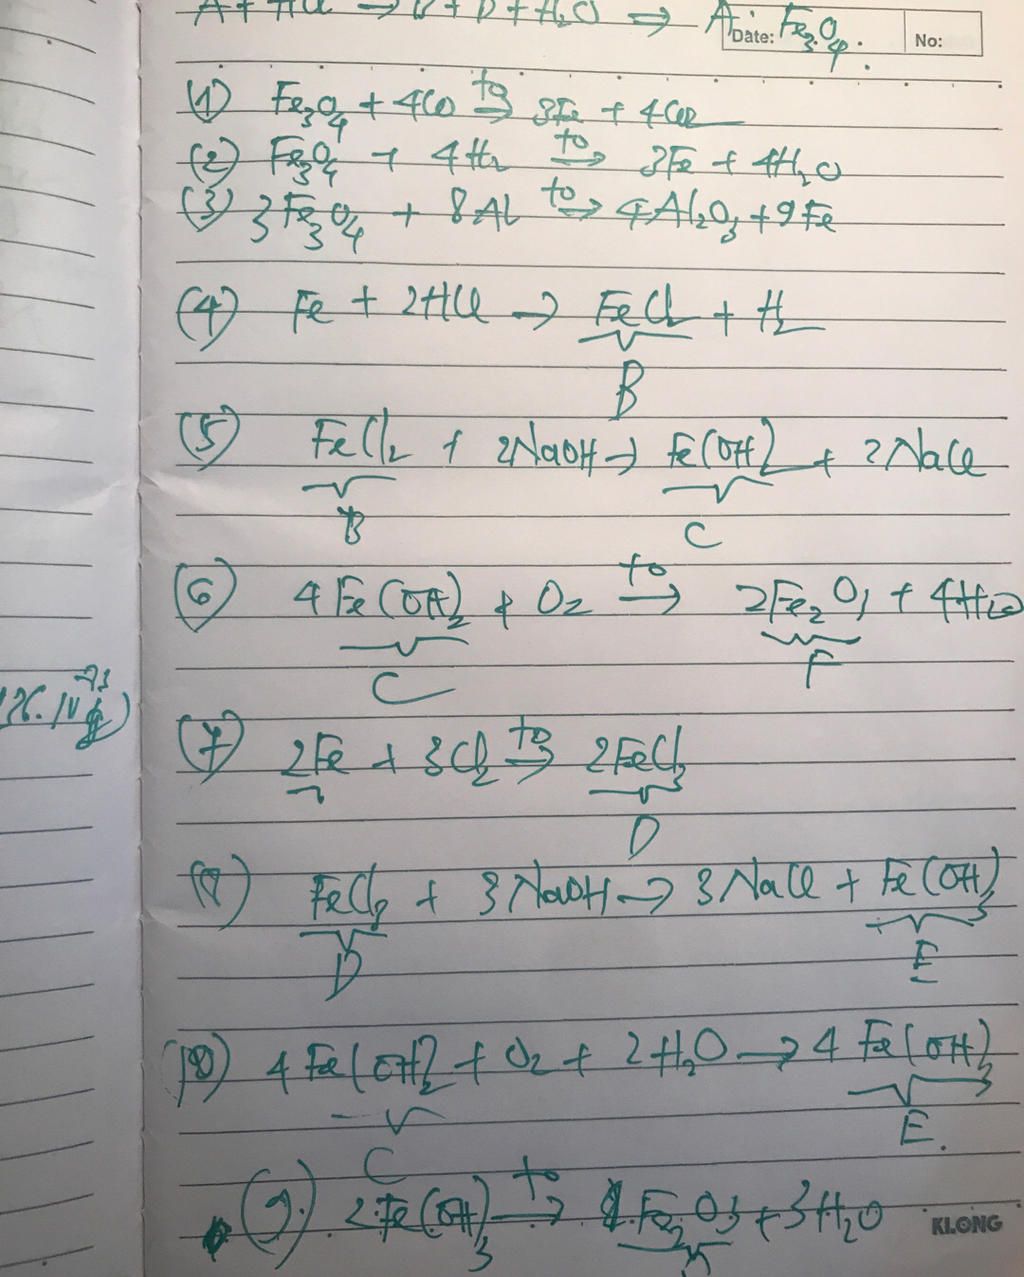 A + HCl → B + D + H₂O ⇒ A: Fe₃O₄.
Date: No:
(1) Fe₃O₄ + 4CO t° → 3Fe + 4CO₂
(2) Fe₃O₄ + 4H₂ t° → 3Fe + 4H₂O
(3) 3Fe₃O₄ + 8Al t° → 4Al₂O₃ + 9Fe
(4) Fe + 2HCl → FeCl₂ + H₂
B
(5) FeCl₂ + 2NaOH → Fe(OH)₂ + 2NaCl
B C
(6) 4Fe(OH)₂ + O₂ t° → 2Fe₂O₃ + 4H₂O
C F
(7) 2Fe + 3Cl₂ t° → 2FeCl₃
D
FeCl₃ + 3NaOH → 3NaCl + Fe(OH)₃
D E
(8) 4Fe(OH)₂ + O₂ + 2H₂O → 4Fe(OH)₃
C E.
(9) 2Fe(OH)₃ t° → Fe₂O₃ + 3H₂O
KLONG